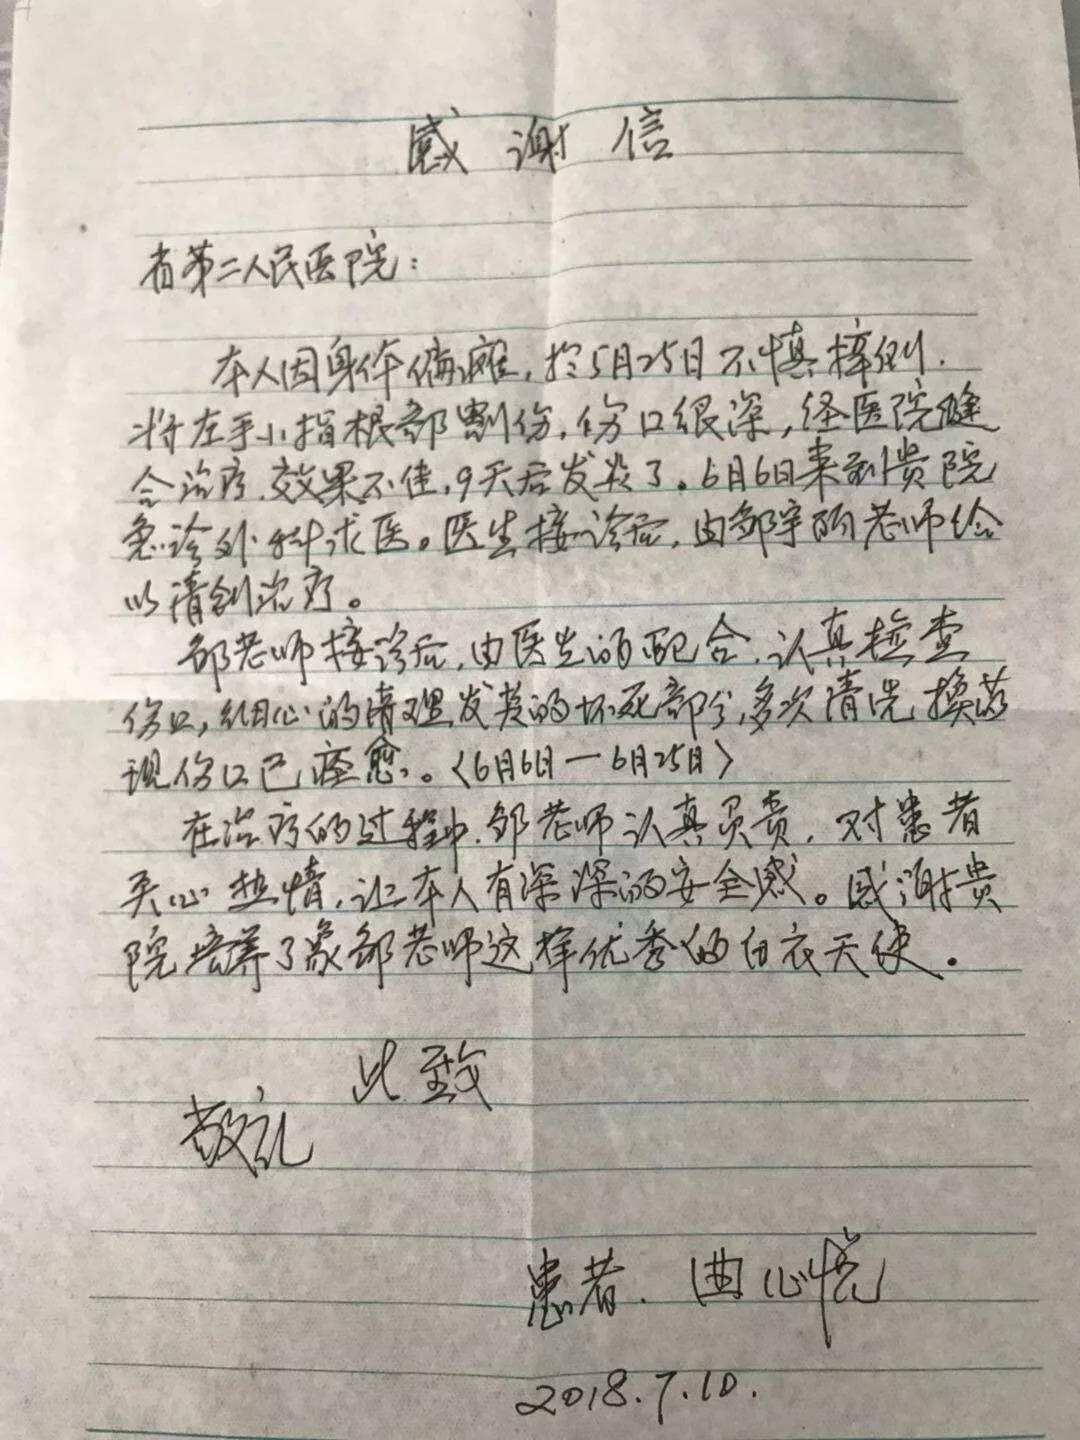 感谢信
省第二人民医院：
本人因身体偏瘫，于5月25日不慎摔倒.
将左手小指根部割伤，伤口很深，经医院缝
合治疗.效果不佳，9天后发炎了。6月6日来到贵院
急诊外科求医。医生接诊后，由邹宇老师给
以清创治疗。
邹老师接诊后，由医生的配合.认真检查
伤口，细心的清理发炎的坏死部分，多次清洗换药
现伤口已痊愈。〈6月6日一6月25日〉
在治疗的过程中.邹老师认真负责，对患者
关心热情，让本人有深深的安全感。感谢贵
院培养了象邹老师这样优秀的白衣天使。
此致
敬礼
患者.曲心悦
2018.7.10.